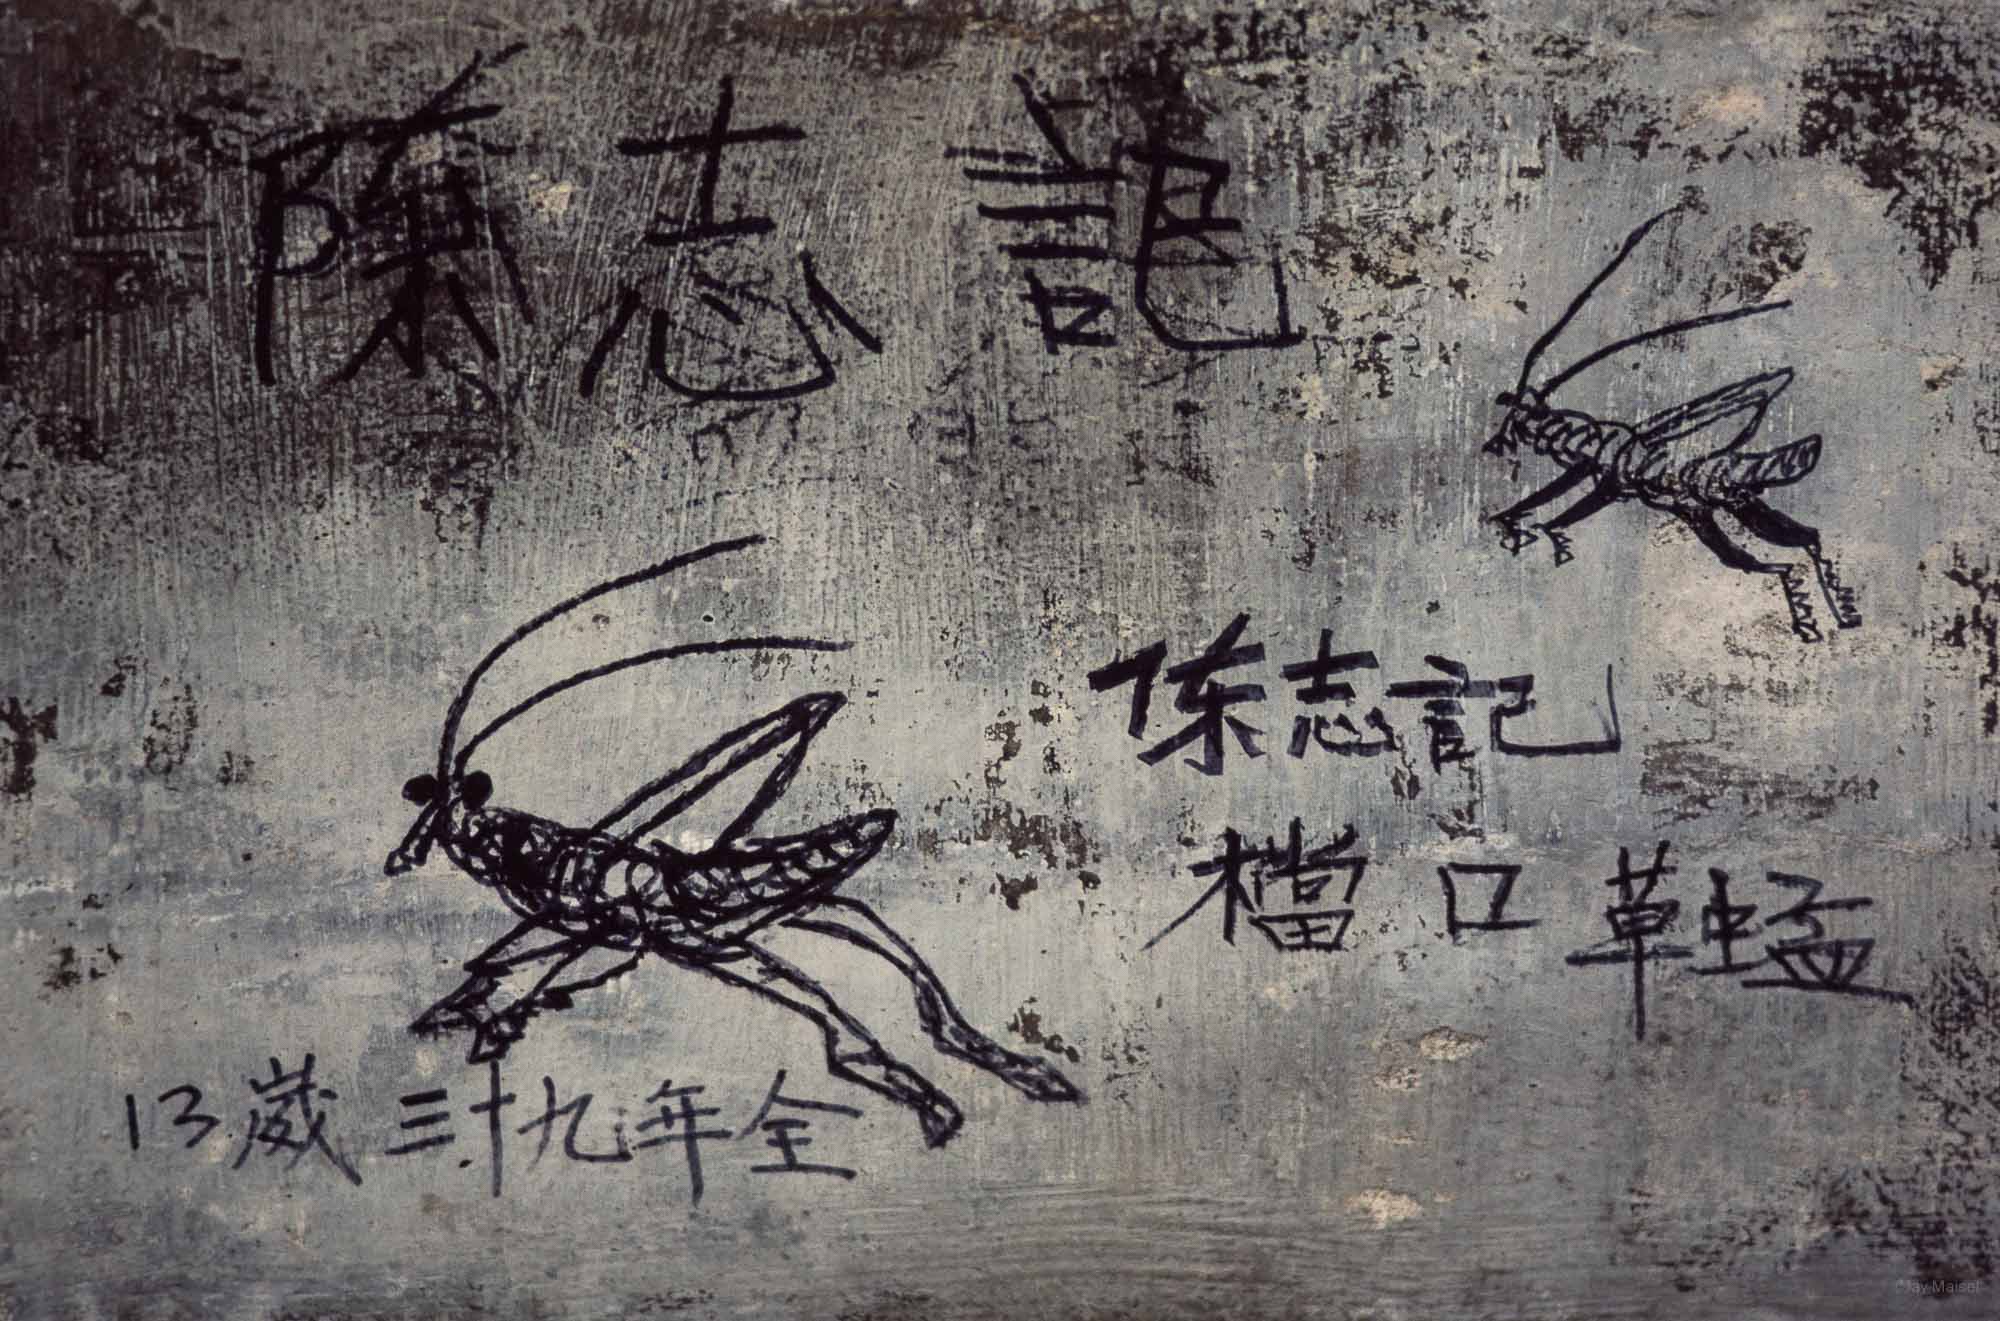 陳志記
陈志記
檔口草蜢
13歲三十九年全
©Jay Maisel